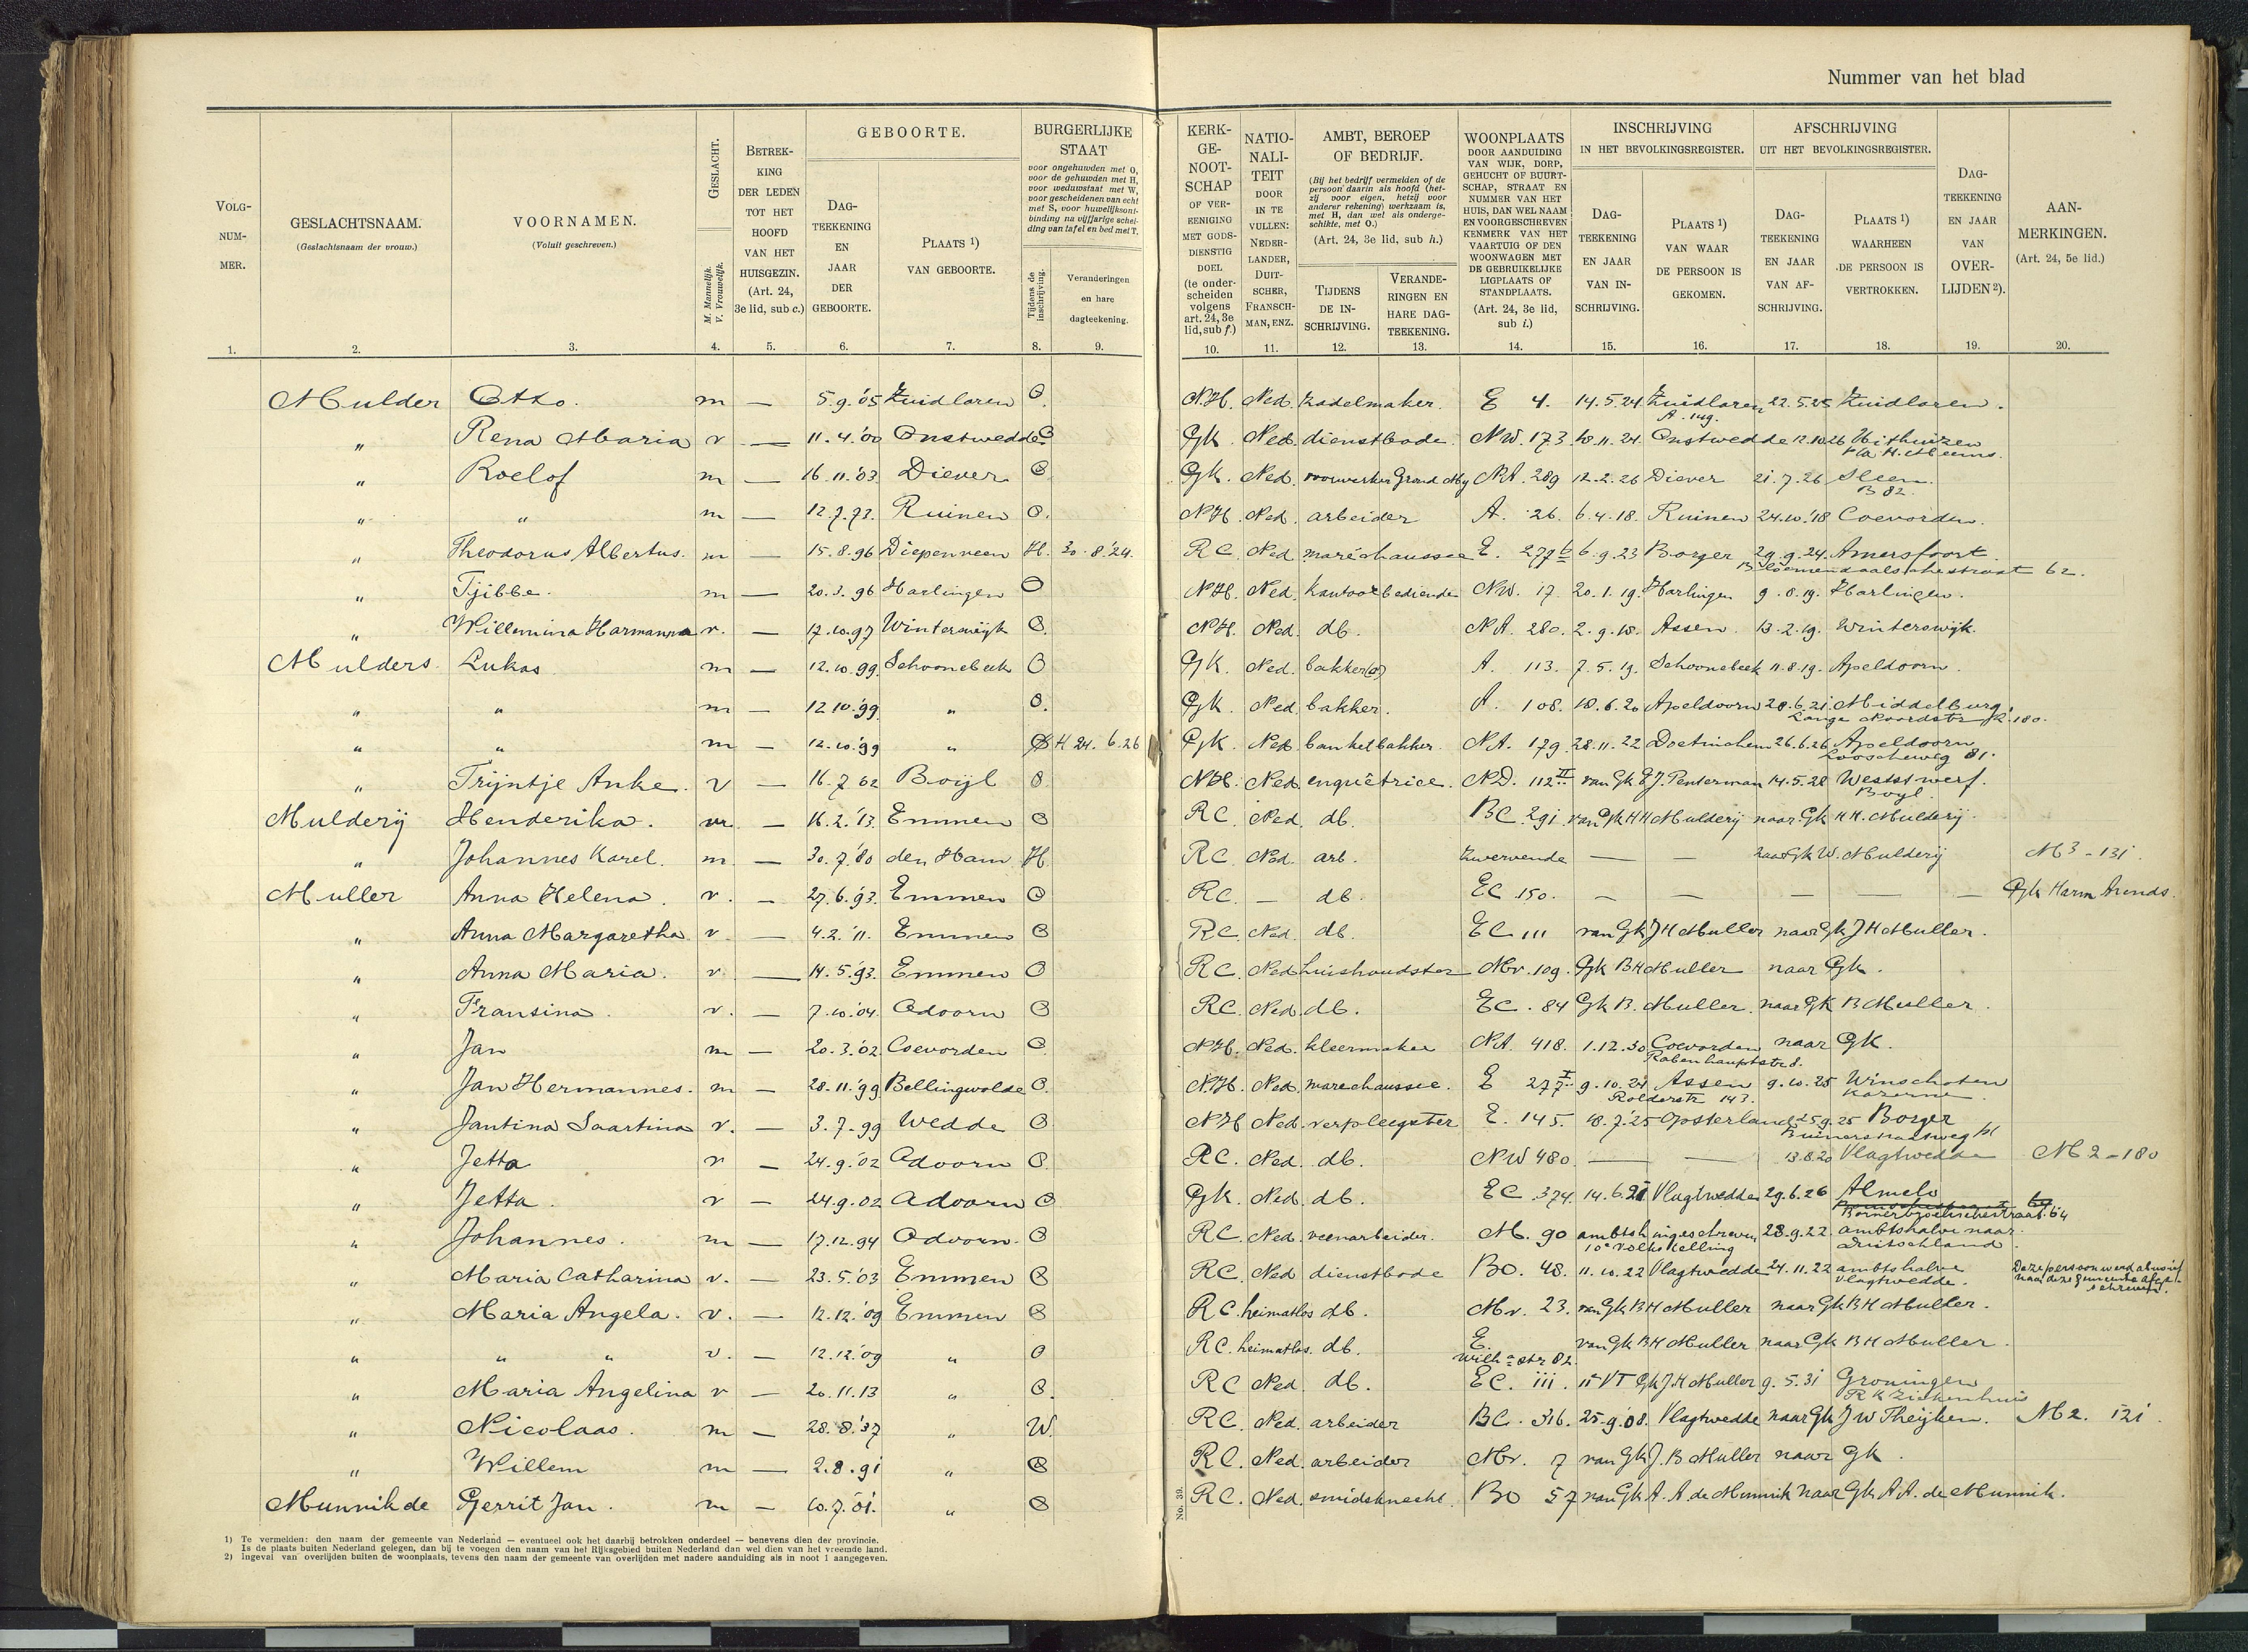 Nummer van het blad
VOLG-NUM-MER.
GESLACHTSNAAM. (Geslachtsnaam der vrouw.)
VOORNAMEN. (Voluit geschreven.)
GESLACHT. M. Mannelijk. V. Vrouwelijk.
BETREK-KING DER LEDEN TOT HET HOOFD VAN HET HUISGEZIN. (Art. 24, 3e lid, sub c.)
GEBOORTE.
DAG-TEEKENING EN JAAR DER GEBOORTE.
PLAATS ¹) VAN GEBOORTE.
BURGERLIJKE STAAT
voor ongehuwden met O, voor de gehuwden met H, voor weduwstaat met W, voor gescheidenen van echt met S, voor huwelijksont-binding na vijfjarige schei-ding van tafel en bed met T.
Tijdens de inschrijving.
Veranderingen en hare dagteekening.
KERK-GE-NOOT-SCHAP OF VER-EENIGING MET GODS-DIENSTIG DOEL (te onder-scheiden volgens art. 24, 3e lid, sub f.)
NATIO-NALI-TEIT DOOR IN TE VULLEN: NEDER-LANDER, DUIT-SCHER, FRANSCH-MAN, ENZ.
AMBT, BEROEP OF BEDRIJF.
(Bij het bedrijf vermelden of de persoon daarin als hoofd (het-zij voor eigen, hetzij voor anderer rekening) werkzaam is, met H, dan wel als onderge-schikte, met O.)
(Art. 24, 3e lid, sub h.)
TIJDENS DE IN-SCHRIJVING.
VERANDE-RINGEN EN HARE DAG-TEEKENING.
WOONPLAATS DOOR AANDUIDING VAN WIJK, DORP, GEHUCT OF BUURT-SCHAP, STRAAT EN NUMMER VAN HET HUIS, DAN WEL NAAM EN VOORGESCHREVEN KENMERK VAN HET VAARTUIG OF DEN WOONWAGEN MET DE GEBRUIKELIJKE LIGPLAATS OF STANDPLAATS. (Art. 24, 3e lid, sub i.)
INSCHRIJVING IN HET BEVOLKINGSREGISTER.
DAG-TEEKENING EN JAAR VAN IN-SCHRIJVING.
PLAATS ¹) VAN WAAR DE PERSOON IS GEKOMEN.
AFSCHRIJVING UIT HET BEVOLKINGSREGISTER.
DAG-TEEKENING EN JAAR VAN AF-SCHRIJVING.
PLAATS ¹) WAARHEEN DE PERSOON IS VERTROKKEN.
DAG-TEEKENING EN JAAR VAN OVER-LIJDEN ²).
AAN-MERKINGEN. (Art. 24, 5e lid.)
1. 2. 3. 4. 5. 6. 7. 8. 9. 10. 11. 12. 13. 14. 15. 16. 17. 18. 19. 20.
Mulder Otto. m — 5.9.'05 Zuidlaren O. N.H. Ned. zadelmaker. E 4. 14.5.24 Zuidlaren 22.5.25 Zuidlaren.
A. 149.
„ Rena Maria v — 11.4.'00 Onstwedde O Gk. Ned. dienstbode. NW. 173. 18.11.24. Onstwedde 12.10.26 Uithuizen
„ Roelof m — 16.11.'03 Diever O Gk. Ned. voorwerker Grond Mij NA. 289 12.2.26 Diever 21.7.26 Sleen.
B 82.
„ „ m — 12.7.73. Ruinen O. N.H. Ned. arbeider A. 26. 6.4.18. Ruinen 24.10.'18 Coevorden.
„ Theodorus Albertus. m — 15.8.96 Diepenveen H. 30.8.'24. RC. Ned. maréchaussee E. 277 b 6.9.23 Borger 29.9.24. Amersfoort.
Bloemendaalschestraat 62.
„ Tjibbe. m — 20.3.96 Harlingen O N.H. Ned. kantoorbediende NW. 17 20.1.19. Harlingen 9.8.19. Harlingen.
„ Willemina Harmanna v. — 17.10.97 Winterswijk O. N.H. Ned. db. NA. 280. 2.9.18. Assen. 13.2.19. Winterswijk.
Mulders. Lukas m — 12.10.99 Schoonebeek O Gk. Ned. bakker (O) A. 113. 7.5.19. Schoonebeek 11.8.19. Apeldoorn.
„ „ m — 12.10.'99 „ O. Gk. Ned. bakker. A. 108. 18.6.20 Apeldoorn 28.6.21. Middelburg.
Lange Noordstr. 180.
„ „ m — 12.10.'99 „ H 24.6.26 Gk. Ned. banketbakker. NA. 179. 28.11.22 Doetinchem 26.6.26 Apeldoorn
Looscheweg 81.
„ Trijntje Anke. v — 16.7.02 Boijl O N.H. Ned. enquêtrice. ND. 112 II van Gk G.J. Penterman 14.5.28 Weststwerf.
Boyl.
Mulderij Henderika. — 16.2.'13. Emmen O RC. Ned. db. BC. 291. van Gk HH Mulderij naar Gk H H. Mulderij.
„ Johannes Karel. m — 30.7.'80 den Ham H RC. Ned. arb. Zwervende — — naar Gk W. Mulderij M3-131.
Muller Anna Helena. v. — 27.6.'93. Emmen O RC. — db. EC 150. — — — — — Gk Harm Arends.
„ Anna Margaretha v — 4.2.'11. Emmen O RC. Ned. db. EC 111 van Gk JH Muller naar Gk JH Muller.
„ Anna Maria. v — 14.5.'93. Emmen O RC. Ned huishoudster Mr. 109. Gk BH Muller naar Gk.
„ Fransina. v. — 7.10.'04. Odoorn O RC. Ned. db. EC. 84 Gk B. Muller. naar Gk B Muller.
„ Jan m — 20.3.'02 Coevorden O N.H. Ned. kleermaker NA 418. 1.12.30 Coevorden naar Gk.
Rabenhauptstr 8.
„ Jan Hermannes. m — 28.11.'99 Bellingwolde O. N.H. Ned. marechaussee. E 277 I 9.10.24 Assen 9.10.25 Winschoten
Rolderstr 143. Kazerne
„ Jantina Saartina v. — 3.7.99 Wedde O N.H Ned. verpleegster E. 145. 18.7.'25 Opsterland 25.9.25 Borger
„ Jetta v — 24.9.'02 Odoorn O RC. Ned. db. NW 480. — — 13.8.20 Vlagtwedde M2-180
„ Jetta. v — 24.9.02 Odoorn O Gk. Ned. db. EC 374. 14.6.21 Vlagtwedde 29.6.26 Almelo
Bornerbroekschestraat. 64
„ Johannes. m — 17.12.94 Odoorn. O RC. Ned. veenarbeider. M. 90 ambtsh ingeschreven 28.9.22. ambtshalve naar
10e Volkstelling Duitschland.
„ Maria Catharina v. — 23.5.'03 Emmen O RC. Ned dienstbode BO. 48. 11.10.22 Vlagtwedde 24.11.22 ambtshalve Deze persoon werd abusief
Vlagtwedde. naar deze gemeente afge-
schreven.
„ Maria Angela. v. — 12.12.'09 Emmen O RC. heimatlos db. Mr. 23. van Gk BH Muller naar Gk BH Muller.
„ „ „ v. — 12.12.'09 „ O RC. heimatlos. db. E. van Gk BH Muller naar Gk BH Muller.
Wilh.a str 82.
„ Maria Angelina v — 20.11.13 „ O. RC Ned. db. EC. 111. 11e VT Gk J.H Muller 9.5.31 Groningen
R K Ziekenhuis
„ Nicolaas. m — 28.8.'37 „ W. RC. Ned. arbeider BC. 316. 25.9.'08. Vlagtwedde naar Gk J W Theijken. M2. 121.
„ Willem m — 2.8.91 „ O RC. Ned. arbeider Mr. 7 van Gk J. B Muller naar Gk.
Munnik de Gerrit Jan. m — 10.7.'01. „ O RC. Ned. smidsknecht. BO 57 van Gk A. A. de Munnik naar Gk A A. de Munnik.
No. 39.
1) Te vermelden: den naam der gemeente van Nederland — eventueel ook het daarbij betrokken onderdeel — benevens dien der provincie.
Is de plaats buiten Nederland gelegen, dan bij te voegen den naam van het Rijksgebied buiten Nederland dan wel dien van het vreemde land.
2) Ingeval van overlijden buiten de woonplaats, tevens den naam der gemeente van overlijden met nadere aanduiding als in noot 1 aangegeven.